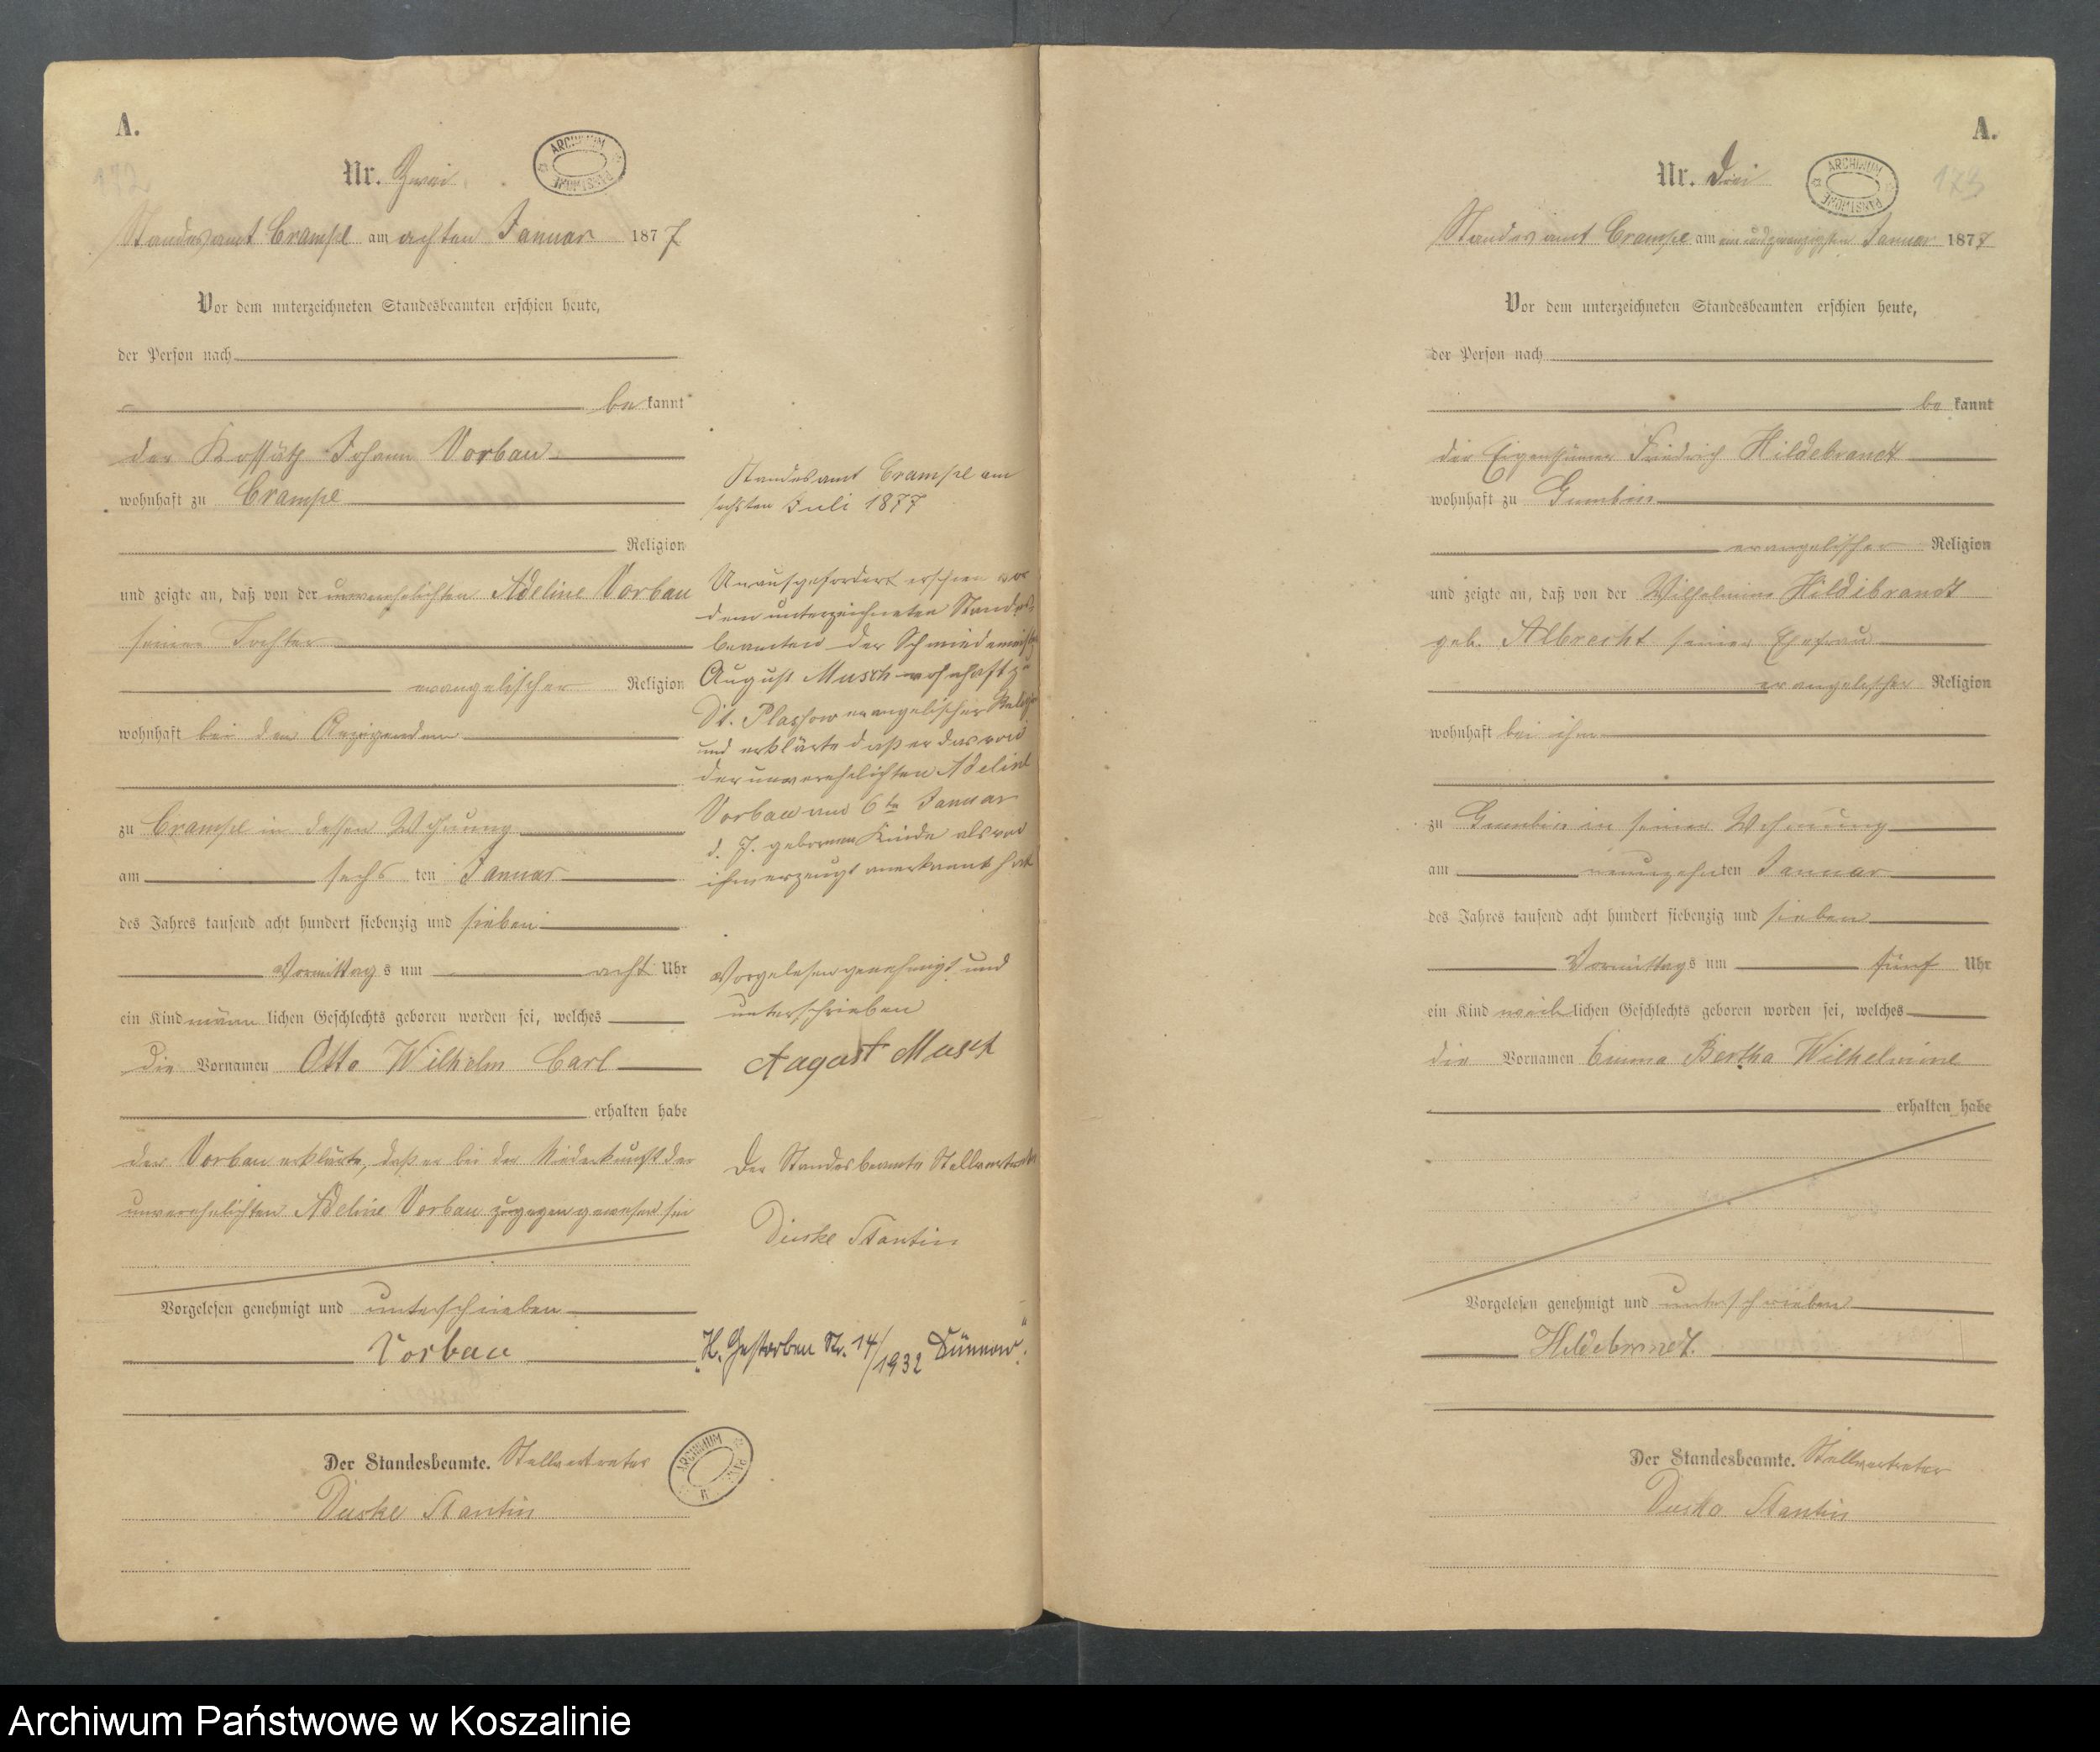 A.
172
Nr. Zwei
ARCHIWUM PAŃSTWOWE
Standesamt Crampe am achten Januar 1877
Vor dem unterzeichneten Standesbeamten erschien heute,
der Person nach
be kannt
der Kossäth Johann Vorbau
wohnhaft zu Crampe
Religion
und zeigte an, daß von der unverehelichten Adeline Vorbau
seiner Tochter
evangelischer Religion
wohnhaft bei dem Anzeigenden
zu Crampe in dessen Wohnung
am sechs ten Januar
des Jahres tausend acht hundert siebenzig und sieben
Vormittags um acht Uhr
ein Kind männlichen Geschlechts geboren worden sei, welches
die Vornamen Otto Wilhelm Carl
erhalten habe
der Vorbau erklärte, daß er bei der Niederkunft der
unverehelichten Adeline Vorbau zugegen gewesen sei
Vorgelesen genehmigt und unterschrieben
Vorbau
Der Standesbeamte. Stellvertreter
Duske Stantin
Standesamt Crampe am
sechsten Juli 1877
Unaufgefordert erschien vor
dem unterzeichneten Standes
beamten der Schmiedemeister
August Musch wohnhaft zu
Dt. Plassow evangelischer Religion
und erklärte daß er das von
der unverehelichten Adeline
Vorbau am 6ten Januar
d. J. geborenen Kinde als von
ihm erzeugt anerkannt hat
Vorgelesen genehmigt und
unterschrieben
August Musch
Der Standesbeamte Stellvertreter
Duske Stantin
"H. Gestorben Nr. 14/1932 Dünnow."
ARCHIWUM PAŃ
A.
173
Nr. Drei
ARCHIWUM PAŃSTWOWE
Standesamt Crampe am ein und zwanzigsten Januar 1877
Vor dem unterzeichneten Standesbeamten erschien heute,
der Person nach
be kannt
der Eigenthümer Friedrich Hildebrandt
wohnhaft zu Gumbin
evangelischer Religion
und zeigte an, daß von der Wilhelmine Hildebrandt
geb. Albrecht seiner Ehefrau
evangelischer Religion
wohnhaft bei ihm
zu Gumbin in seiner Wohnung
am neunzehnten Januar
des Jahres tausend acht hundert siebenzig und sieben
Vormittags um fünf Uhr
ein Kind weiblichen Geschlechts geboren worden sei, welches
die Vornamen Emma Bertha Wilhelmine
erhalten habe
Vorgelesen genehmigt und unterschrieben
Hildebrandt.
Der Standesbeamte. Stellvertreter
Duske Stantin
Archiwum Państwowe w Koszalinie